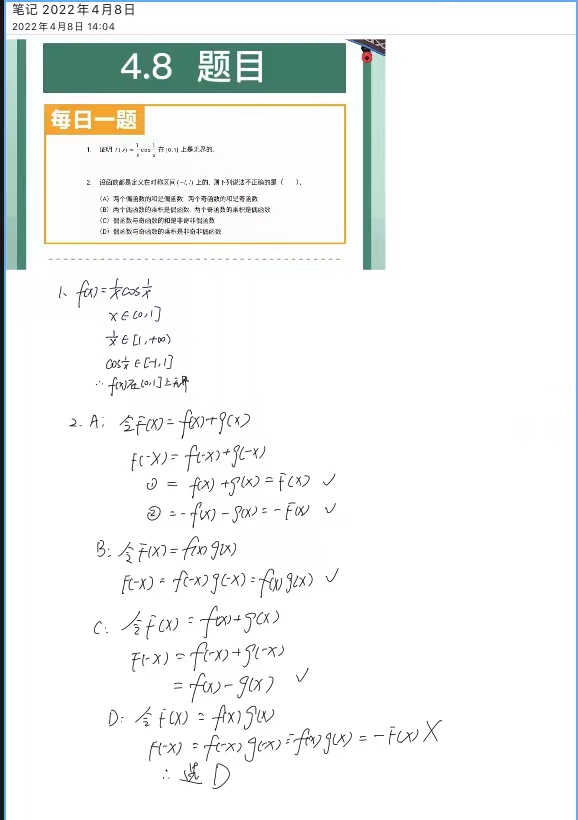 笔记 2022年4月8日
2022年4月8日 14:04
4.8 题目
每日一题
1. 证明 f(x)=1/x cos 1/x 在(0,1]上是无界的.
2. 设函数都是定义在对称区间(-l,l)上的, 则下列说法不正确的是( ).
(A) 两个偶函数的和是偶函数, 两个奇函数的和是奇函数
(B) 两个偶函数的乘积是偶函数, 两个奇函数的乘积是偶函数
(C) 偶函数与奇函数的和是非奇非偶函数
(D) 偶函数与奇函数的乘积是非奇非偶函数
1、f(x)=1/x cos 1/x
x∈(0,1]
1/x∈[1,+∞)
cos 1/x∈[-1,1]
∴ f(x)在(0,1]上无界
2. A: 令F(x)=f(x)+g(x)
F(-x)=f(-x)+g(-x)
① = f(x)+g(x)=F(x) ✓
② =-f(x)-g(x)=-F(x) ✓
B: 令F(x)=f(x)g(x)
F(-x)=f(-x)g(-x)=f(x)g(x) ✓
C: 令F(x)=f(x)+g(x)
F(-x)=f(-x)+g(-x)
=f(x)-g(x) ✓
D: 令F(x)=f(x)g(x)
F(-x)=f(-x)g(-x)=-f(x)g(x)=-F(x) X
∴ 选 D